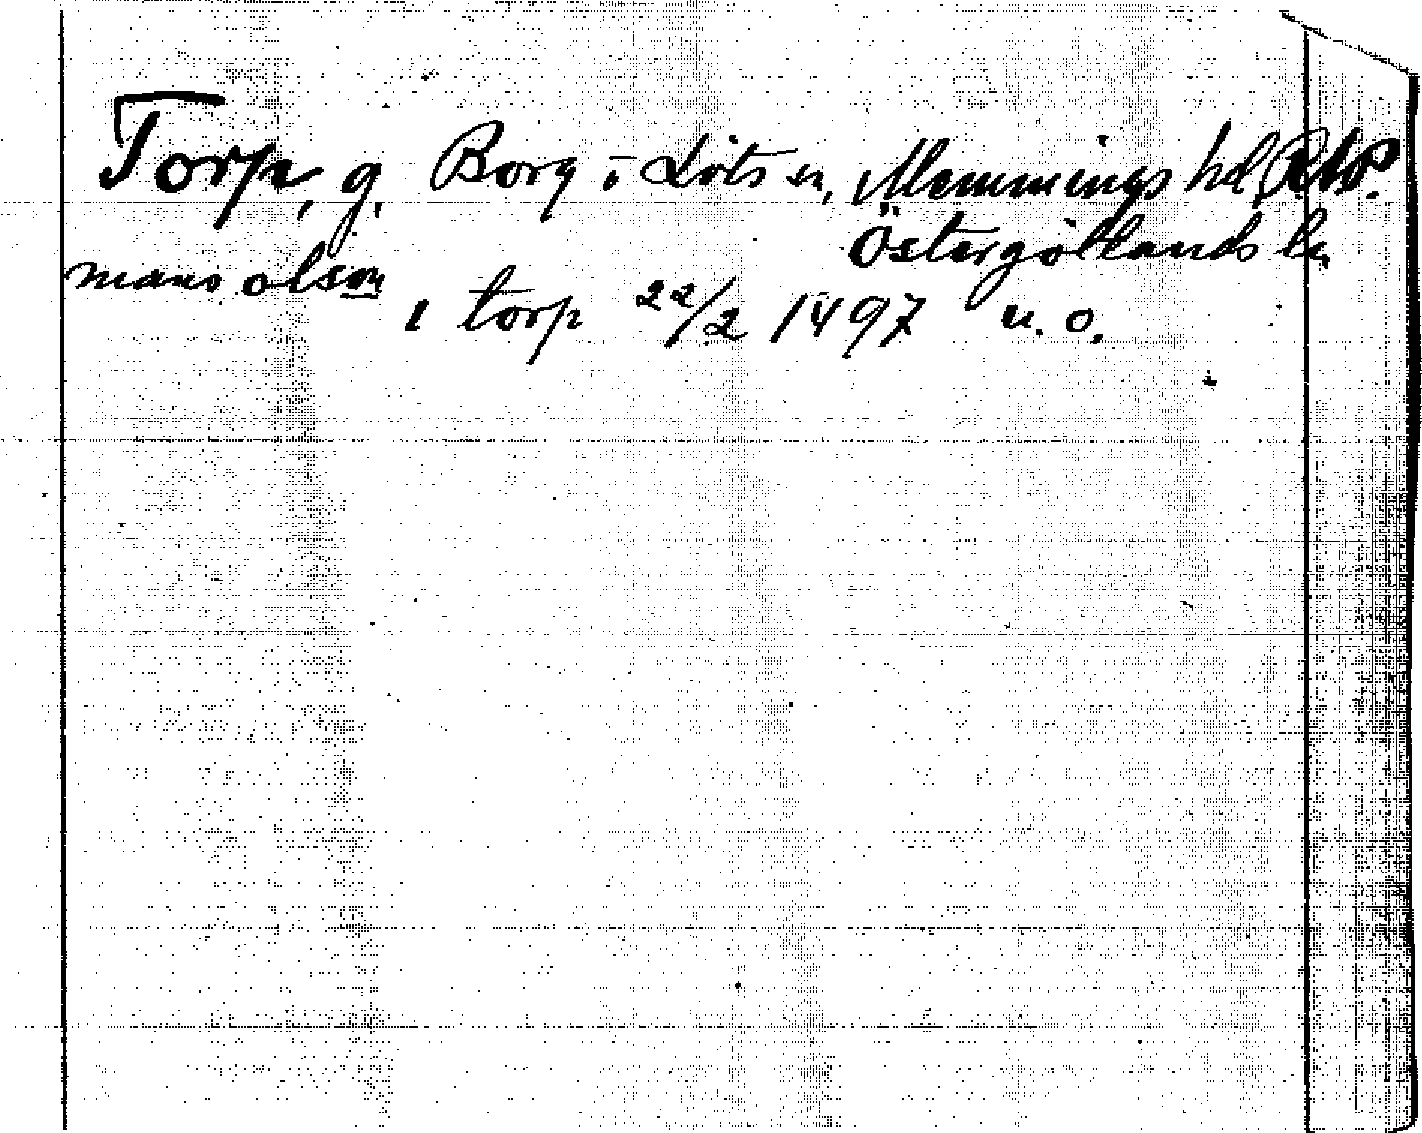 Torp, g. Borg o Löts sn, Memmings hd
Östergötlands ln
mans olson
i torp 22/2 1497 u. o.